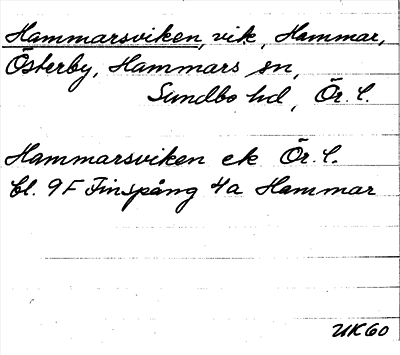 Hammarsviken, vik, Hammar,
Österby, Hammars sn,
Sundbo hd, Ör. l.
Hammarsviken ek Ör. l.
bl. 9F Finspång 4a Hammar
UK60